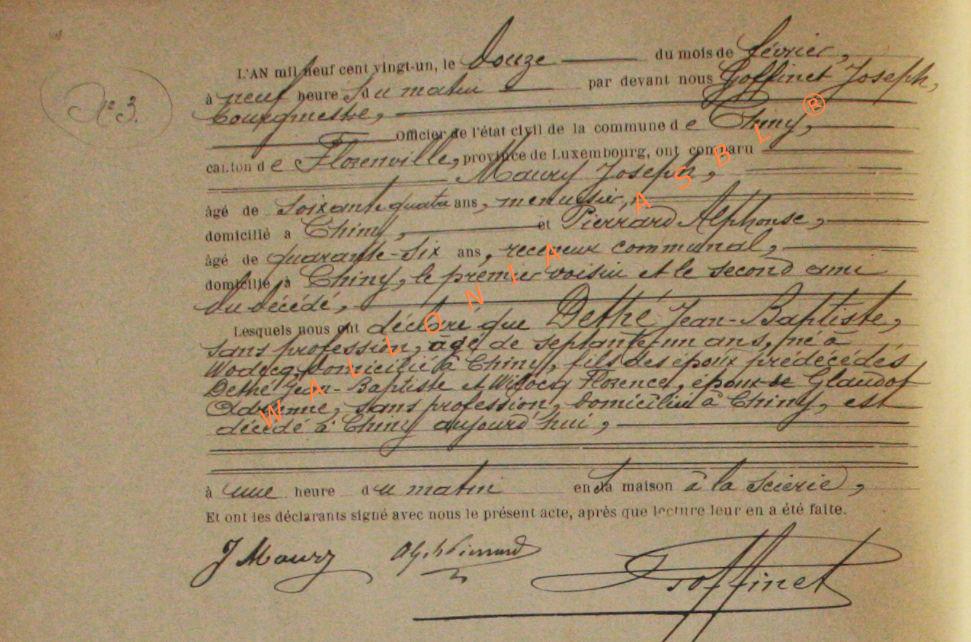 N° 3.
L'AN mil neuf cent vingt-un, le Douze du mois de février,
à neuf heures du matin par devant nous Goffinet Joseph,
bourgmestre,
officier de l'état civil de la commune de Chiny,
canton de Florenville, province de Luxembourg, ont comparu
Maury Joseph,
âgé de soixante quatre ans, menuisier,
domicilié à Chiny, et Pierrard Alphonse,
âgé de quarante-six ans, receveur communal,
domicilié à Chiny, le premier voisin et le second ami
du décédé,
Lesquels nous ont déclaré que Dethé Jean-Baptiste,
sans profession, âgé de septante un ans, né à
Wodecq, domicilié à Chiny, fils des époux prédécédés
Dethé Jean-Baptiste et Willocq Florence, époux de Glaudot
sans profession, domiciliée à Chiny, est
décédé à Chiny aujourd'hui,
à une heure du matin en sa maison à la scierie,
Et ont les déclarants signé avec nous le présent acte, après que lecture leur en a été faite.
J Maury Alph Pierrard Goffinet
WALLONIA ASBL ®